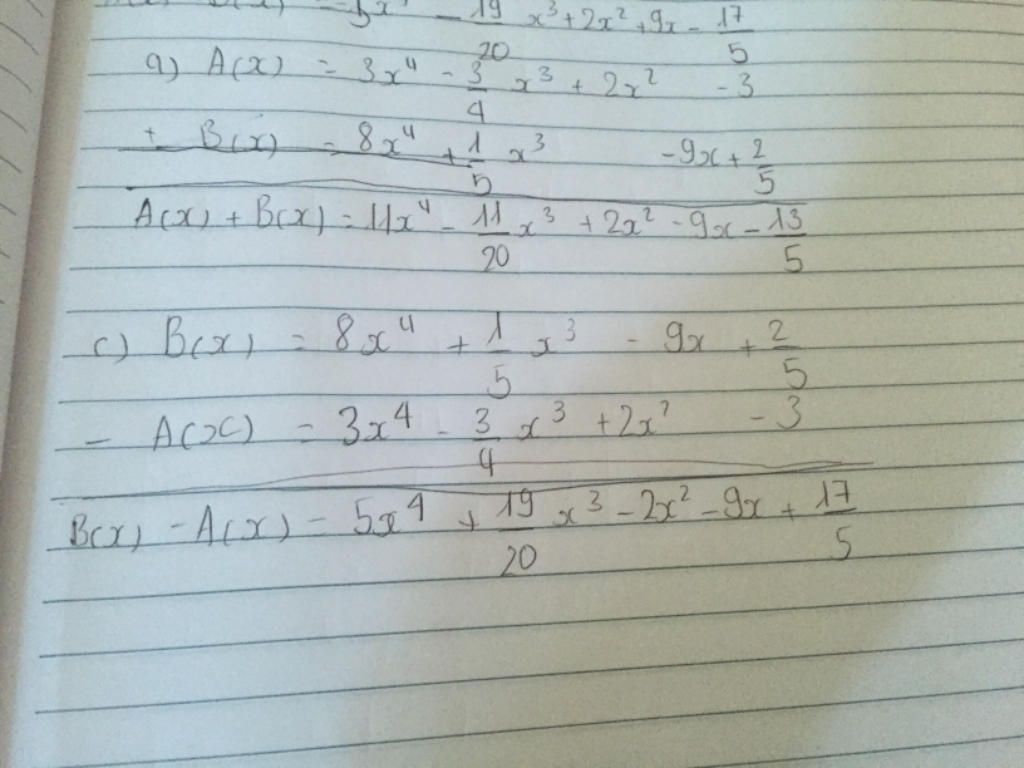 B(x) = -5x⁴ - 19/20 x³ + 2x² + 9x - 17/5
a) A(x) = 3x⁴ - 3/4 x³ + 2x² - 3
+ B(x) = 8x⁴ + 1/5 x³ - 9x + 2/5
A(x) + B(x) = 11x⁴ - 11/20 x³ + 2x² - 9x - 13/5
c) B(x) = 8x⁴ + 1/5 x³ - 9x + 2/5
- A(x) = 3x⁴ - 3/4 x³ + 2x² - 3
B(x) - A(x) = 5x⁴ + 19/20 x³ - 2x² - 9x + 17/5